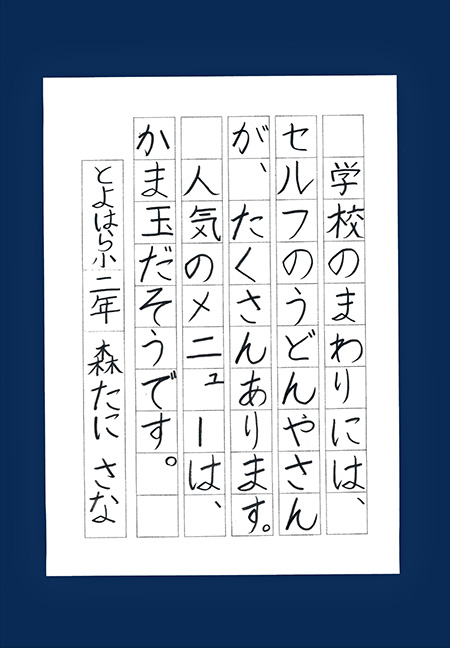 学校のまわりには、
セルフのうどんやさん
が、たくさんあります。
人気のメニューは、
かま玉だそうです。
とよはら小 二年 森たに さな